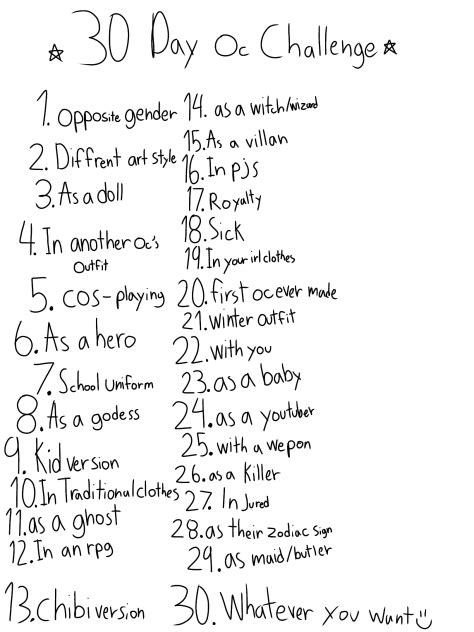 ☆ 30 Day Oc Challenge ☆
1. Opposite gender
2. Diffrent art style
3. As a doll
4. In another oc's
outfit
5. cos-playing
6. As a hero
7. School uniform
8. As a godess
9. Kid version
10. In Traditional clothes
11. as a ghost
12. In an rpg
13. chibi version
14. as a witch/wizard
15. As a villan
16. In pjs
17. Royalty
18. Sick
19. In your irl clothes
20. first oc ever made
21. winter outfit
22. with you
23. as a baby
24. as a youtuber
25. with a wepon
26. as a Killer
27. In Jured
28. as their Zodiac Sign
29. as maid/butler
30. Whatever you want :)